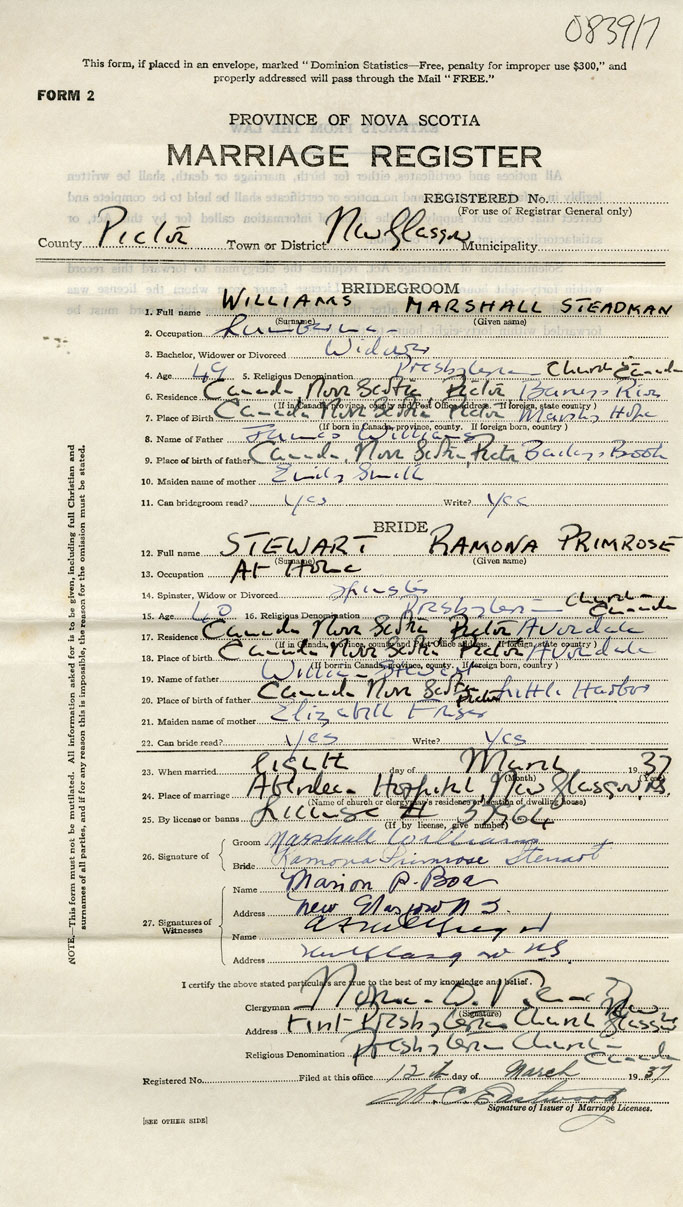 083917
This form, if placed in an envelope, marked "Dominion Statistics—Free, penalty for improper use $300," and
properly addressed will pass through the Mail "FREE."
FORM 2
PROVINCE OF NOVA SCOTIA
MARRIAGE REGISTER
REGISTERED No.
(For use of Registrar General only)
County Pictou Town or District New Glasgow Municipality
BRIDEGROOM
1. Full name WILLIAMS MARSHALL STEADMAN
(Surname) (Given name)
2. Occupation
3. Bachelor, Widower or Divorced Widower
4. Age 49 5. Religious Denomination Presbyterian Church Canada
6. Residence Canada Nova Scotia Pictou Barneys River
(If in Canada, province, county and Post Office address. If foreign, state country)
7. Place of Birth Canada Nova Scotia Pictou Marshy Hope
(If born in Canada, province, county. If foreign born, country)
8. Name of Father James Williams
9. Place of birth of father Canada, Nova Scotia, Pictou Baileys Brook
10. Maiden name of mother Emily Smith
11. Can bridegroom read? Yes Write? Yes
BRIDE
12. Full name STEWART RAMONA PRIMROSE
(Surname) (Given name)
13. Occupation At Home
14. Spinster, Widow or Divorced Spinster
15. Age 40 16. Religious Denomination Presbyterian Church Canada
17. Residence Canada Nova Scotia Pictou Avondale
(If in Canada, province, county and Post Office address. If foreign, state country)
18. Place of birth Canada Nova Scotia Pictou Avondale
(If born in Canada, province, county. If foreign born, country)
19. Name of father William Stewart
20. Place of birth of father Canada Nova Scotia Pictou Little Harbor
21. Maiden name of mother Elizabeth Fraser
22. Can bride read? Yes Write? Yes
23. When married Eighth day of March 1937
(Month) (Year)
24. Place of marriage Aberdeen Hospital, New Glasgow, N.S.
(Name of church or clergyman's residence or location of dwelling house)
25. By license or banns License #
(If by license, give number)
26. Signature of
Groom Marshall Williams
Bride Ramona Primrose Stewart
27. Signatures of Witnesses
Name Marion P. Boa
Address New Glasgow N S.
Name
Address New Glasgow N.S.
I certify the above stated particulars are true to the best of my knowledge and belief.
Clergyman
(Signature)
Address First Presbyterian Church New Glasgow
Religious Denomination Presbyterian Church Canada
Registered No. Filed at this office 12th day of March 1937
Eastwood
Signature of Issuer of Marriage Licenses.
[SEE OTHER SIDE]
NOTE.—This form must not be mutilated. All information asked for is to be given, including full Christian and
surnames of all parties, and if for any reason this is impossible, the reason for the omission must be stated.